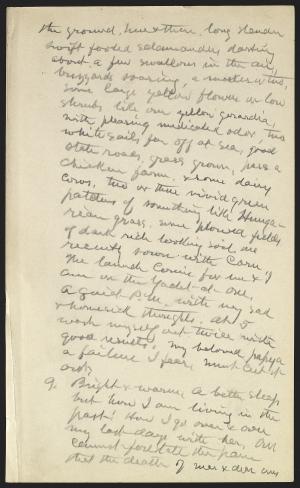 the ground, here & there, long slender
swift footed salamanders darting
about a few swallows in the air,
buzzards soaring, a mother or two,
some large yellow flower on low
shrubs like our yellow gerardia,
with pleasing medicated odor, two
white sails far off at sea, good
state roads, grass grown, pass a
chicken farm, & some dairy
cows, two or three vivid green
patches of something like Hunga-
rian grass, some plowed fields
of dark rich looking soil, one
recently sown with corn.
The launch comes for me &
am on the yacht at one,
A quiet P.M. with my sad
& homesick thoughts. At 5
wash myself out twice with
good results; my beloved papaya
a failure I fear, must cut it
out.
9. Bright & warm, a better sleep
but how I am living in the
past! How I go over & over
my last days with her, All
cannot foretaste the pain
that the death of near & dear ones